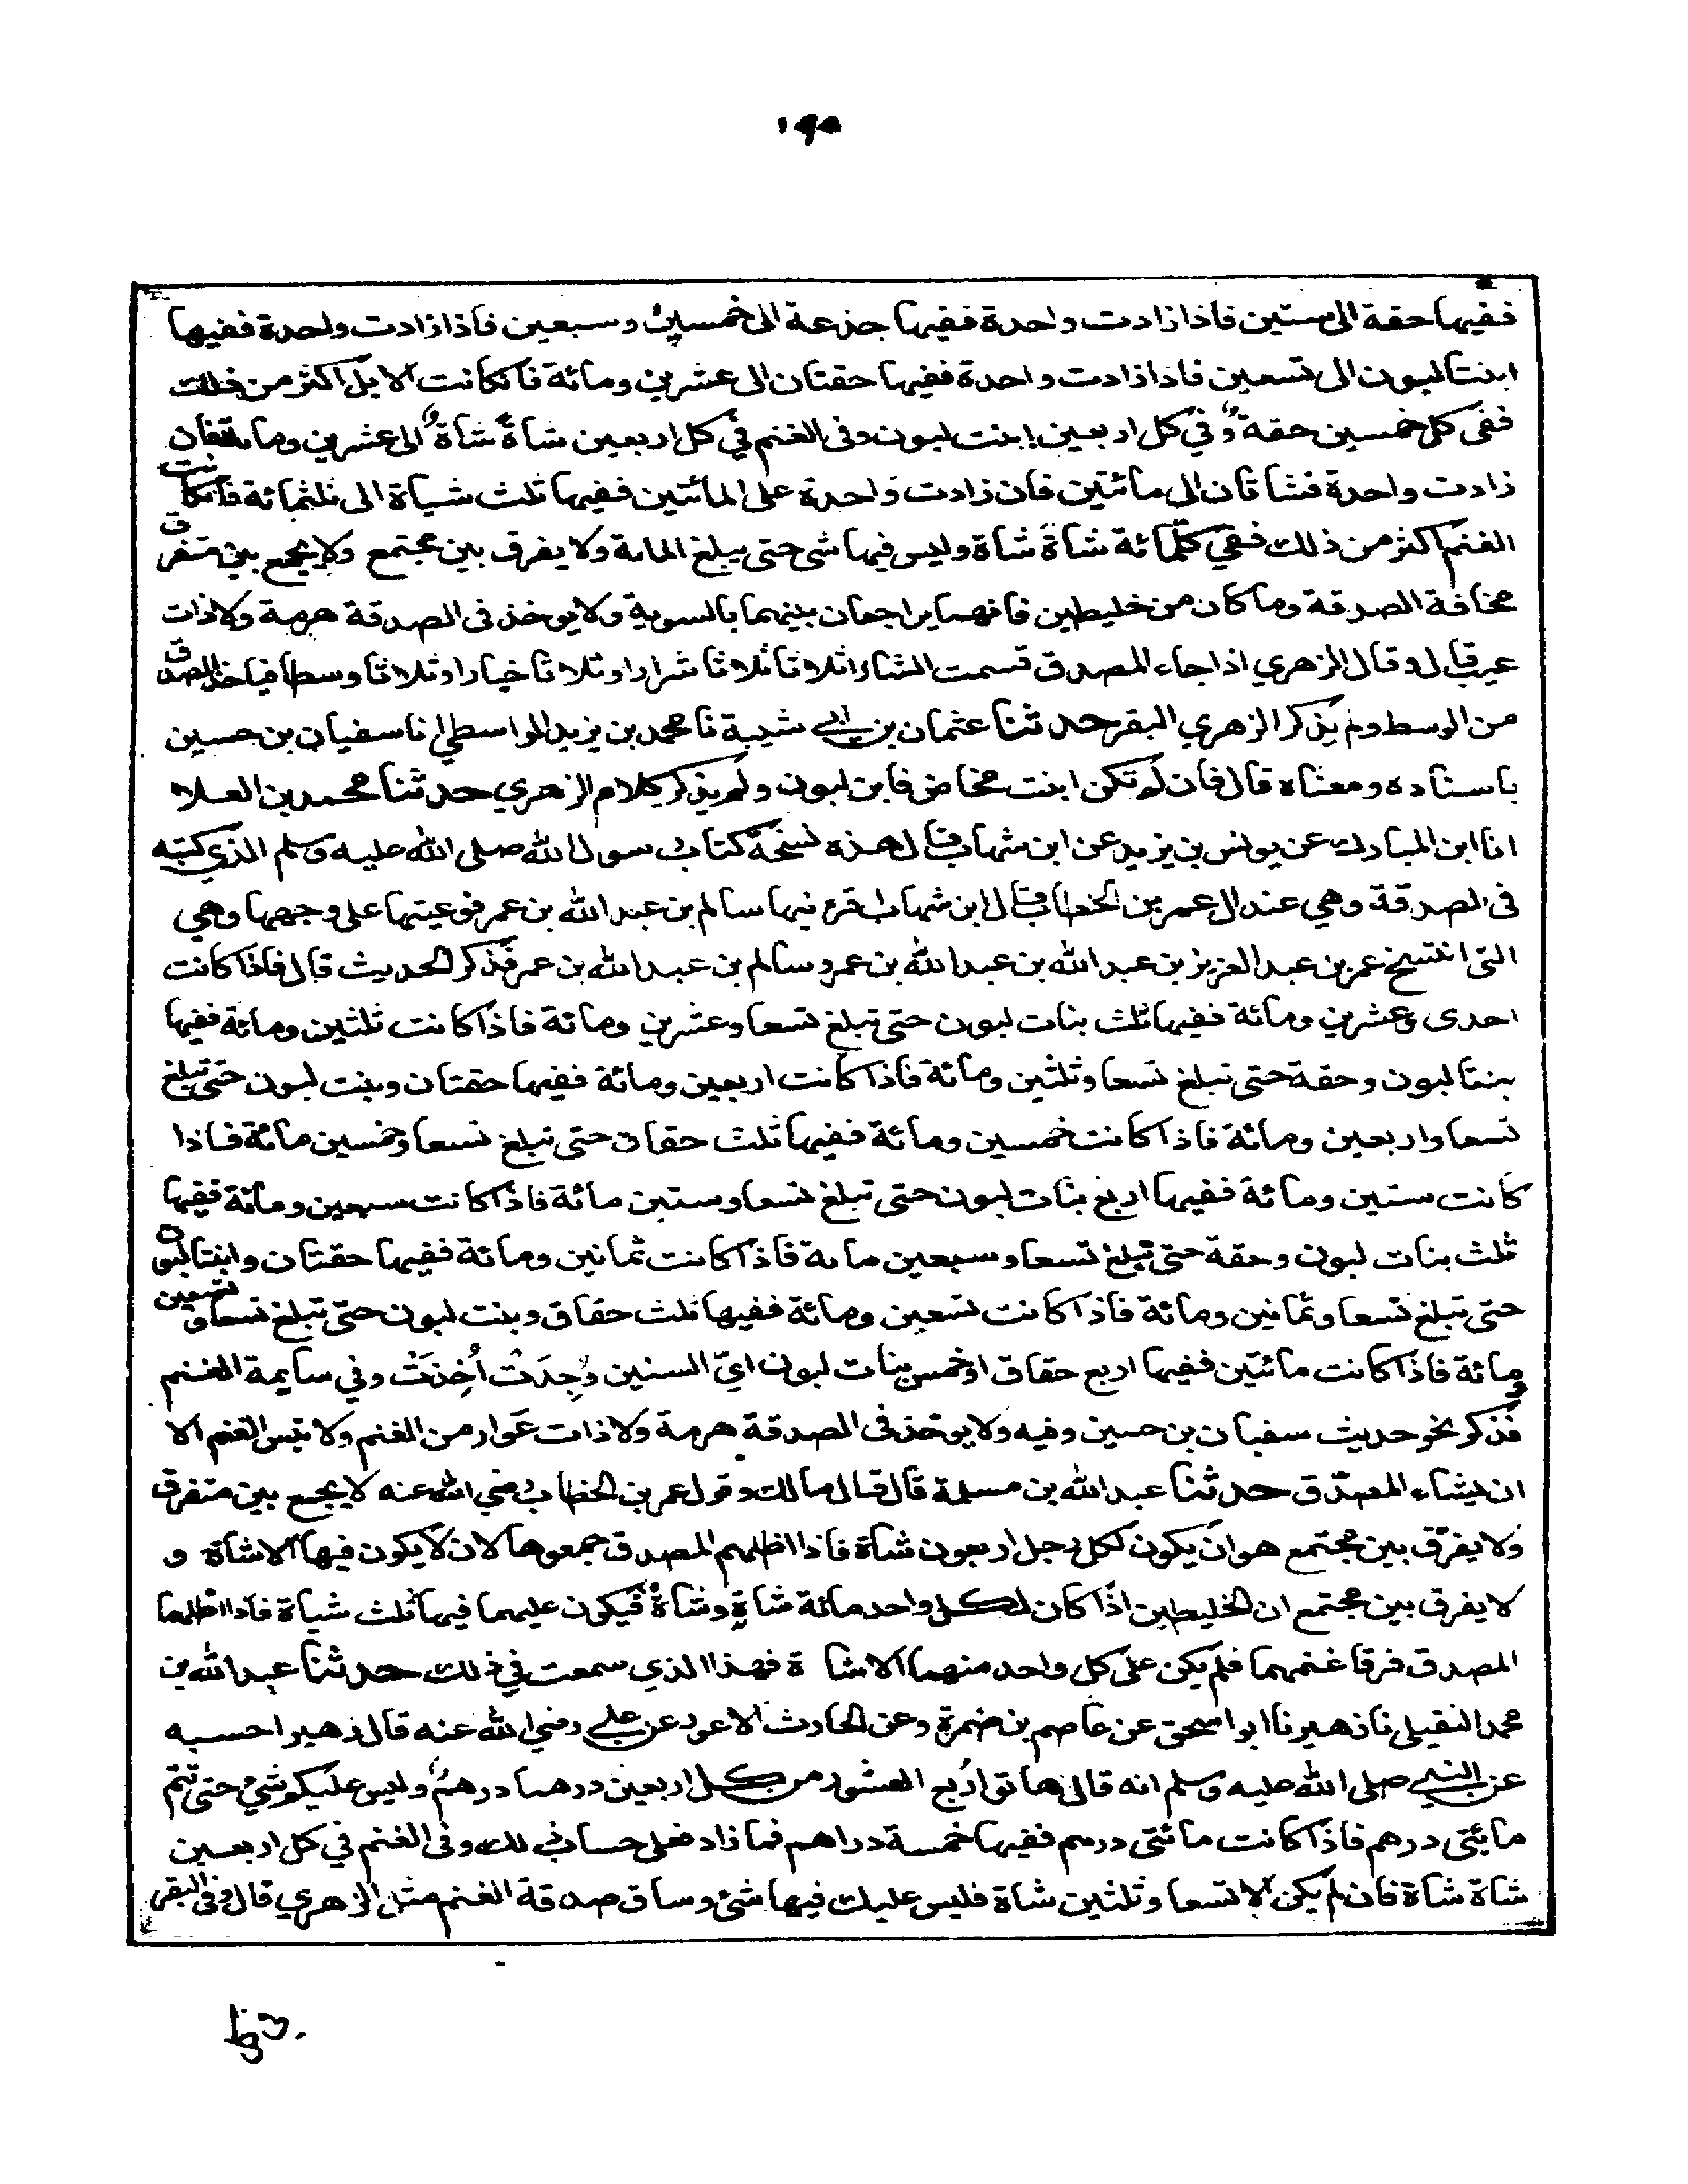 ١٩٥
ففيها حقة الى ستين فاذا زادت واحدة ففيها جذعة الى خمسين وسبعين فاذا زادت واحدة ففيها
ابنتا لبون الى تسعين فاذا زادت واحدة ففيها حقتان الى عشرين ومائة فان كانت الابل اكثر من ذلك
ففي كل خمسين حقة وفي كل اربعين ابنت لبون وفى الغنم في كل اربعين شاة شاة الى عشرين ومائة فان
زادت واحدة فشاتان الى مائتين فان زادت واحدة على المائتين ففيها ثلث شياة الى ثلثمائة فان كانت
الغنم اكثر من ذلك ففي كل مائة شاة شاة وليس فيها شى حتى يبلغ المائة ولا يفرق بين مجتمع ولا يجمع بين متفرق
مخافة الصدقة وما كان من خليطين فانهما يراجعان بينهما بالسوية ولا يوخذ فى الصدقة هرمة ولا ذات
عيب قال وقال الزهري اذا جاء المصدق قسمت الشاء اثلاثا ثلاثا شرارا وثلاثا خيارا وثلاثا وسطا فياخذ المصدق
من الوسط ولم يذكر الزهري البقر حدثنا عثمان بن ابي شيبة نا محمد بن يزيد الواسطي انا سفيان بن حسين
باسناده ومعناه قال فان لم تكن ابنت مخاض فابن لبون ولم يذكر كلام الزهري حدثنا محمد بن العلاء
انا ابن المبارك عن يونس بن يزيد عن ابن شهاب قال هذه نسخة كتاب رسول الله صلى الله عليه وسلم الذي كتبه
فى الصدقة وهي عند ال عمر بن الخطاب قال ابن شهاب اقرءنيها سالم بن عبد الله بن عمر فوعيتها على وجهها وهي
التى انتسخ عمر بن عبد العزيز بن عبد الله بن عبد الله بن عمر وسالم بن عبد الله بن عمر فذكر الحديث قال فاذا كانت
احدى وعشرين ومائة ففيها ثلث بنات لبون حتى تبلغ تسعا وعشرين ومائة فاذا كانت ثلثين ومائة ففيها
بنتا لبون وحقة حتى تبلغ تسعا وثلثين ومائة فاذا كانت اربعين ومائة ففيها حقتان وبنت لبون حتى تبلغ
تسعا واربعين ومائة فاذا كانت خمسين ومائة ففيها ثلث حقاق حتى تبلغ تسعا وخمسين مائة فاذا
كانت ستين ومائة ففيها اربع بنات لبون حتى تبلغ تسعا وستين مائة فاذا كانت سبعين ومائة ففيها
ثلث بنات لبون وحقة حتى تبلغ تسعا وسبعين مائة فاذا كانت ثمانين ومائة ففيها حقتان وابنتا لبون
حتى تبلغ تسعا وثمانين ومائة فاذا كانت تسعين ومائة ففيها ثلث حقاق وبنت لبون حتى تبلغ تسعا وتسعين
ومائة فاذا كانت مائتين ففيها اربع حقاق او خمس بنات لبون ايّ السنين وُجِدَتْ اُخِذَتْ وفي سايمة الغنم
فذكر نحو حديث سفيان بن حسين وفيه ولا يوخذ فى الصدقة هرمة ولا ذات عَوار من الغنم ولا تيس الغنم الا
ان يشاء المصدّق حدثنا عبد الله بن مسلمة قال قال مالك وقول عمر بن الخطاب رضي الله عنه لا يجمع بين متفرق
ولا يفرّق بين مجتمع هو ان يكون لكل رجل اربعون شاة فاذا اظلهم المصدق جمعوها لان لا يكون فيها الا شاة و
لا يفرق بين مجتمع ان الخليطين اذا كان لكل واحد مائة شاةٍ وشاةٌ فيكون عليهما فيها ثلث شياة فاذا اظلهما
المصدق فرقا غنمهما فلم يكن على كل واحد منهما الا شاة فهذا الذي سمعت في ذلك حدثنا عبد الله بن
محمد النفيلى نا زهير نا ابو اسحق عن عاصم بن ضمرة وعن الحارث الاعور عن علي رضي الله عنه قال زهير احسبه
عن النبي صلى الله عليه وسلم انه قال هاتوا رُبع العشور من كل اربعين درهما درهمٌ وليس عليكم شئ حتى تتم
مائتى درهم فاذا كانت مائتى درهم ففيها خمسة دراهم فما زاد فعلى حساب ذلك وفى الغنم في كل اربعين
شاة شاة فان لم يكن الا تسعا وثلثين شاة فليس عليك فيها شئ وساق صدقة الغنم مثل الزهري قال وفى البقر